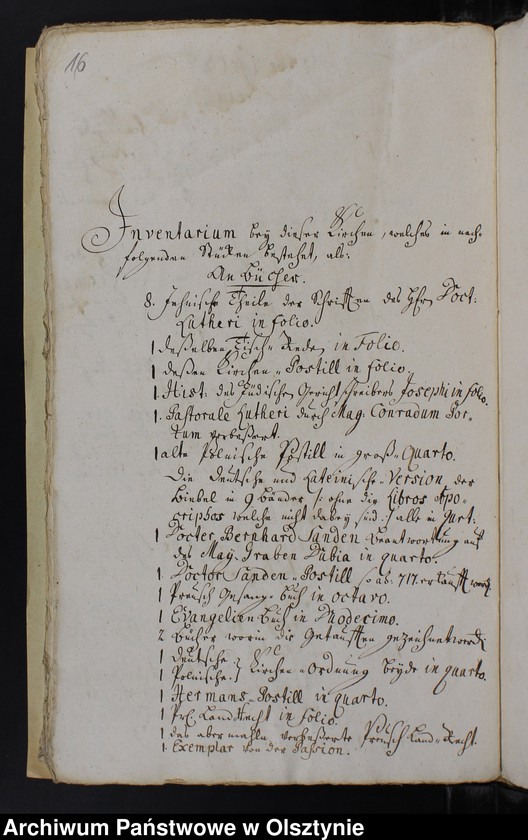 16
Inventarium bey dieser Kirchen, welches in nach-
folgenden Stücken bestehet, als:
An Bücher.
8. Jehnische Theile der Schrifften des Hfn Doct:
Lutheri in folio.
1 deßelben Tisch-Reden in Folio.
1 deßen Kirchen-Postill in folio.
1. Hist: des Jüdischen Gericht schreibers Josephi in folio.
1. Pastorale Lutheri durch Mag: Conradum Por-
tum verbeßert.
1 alte Polnische Postill in groß-Quarto.
Die deutsche und Lateinische-Version der
Biebel in 9 Bänder /: ohne die Libros Apo-
criphos welche nicht dabey sind :/ alle in quart:
1 Docter Bernhard Sanden Beantwortung auf
des Mag: Graben Dubia in quarto.
1. Doctor Sanden-Postill so ao: 717. erkaufft word.
1 Preusch Gesang-buch in octavo.
1 Evangelien Buch in Duodecimo.
2 Bücher worin die Getaufften gezeichnet werd.
1 deutsche
1 Polnische :/ Kirchen-Ordnung beyde in quarto.
1 Hermans-Postill in quarto.
1 Pr. LandRecht in folio.
1 des abermahls verbeßerte Preusch Land-Recht.
1. Exemplar von der Passion.
Archiwum Państwowe w Olsztynie